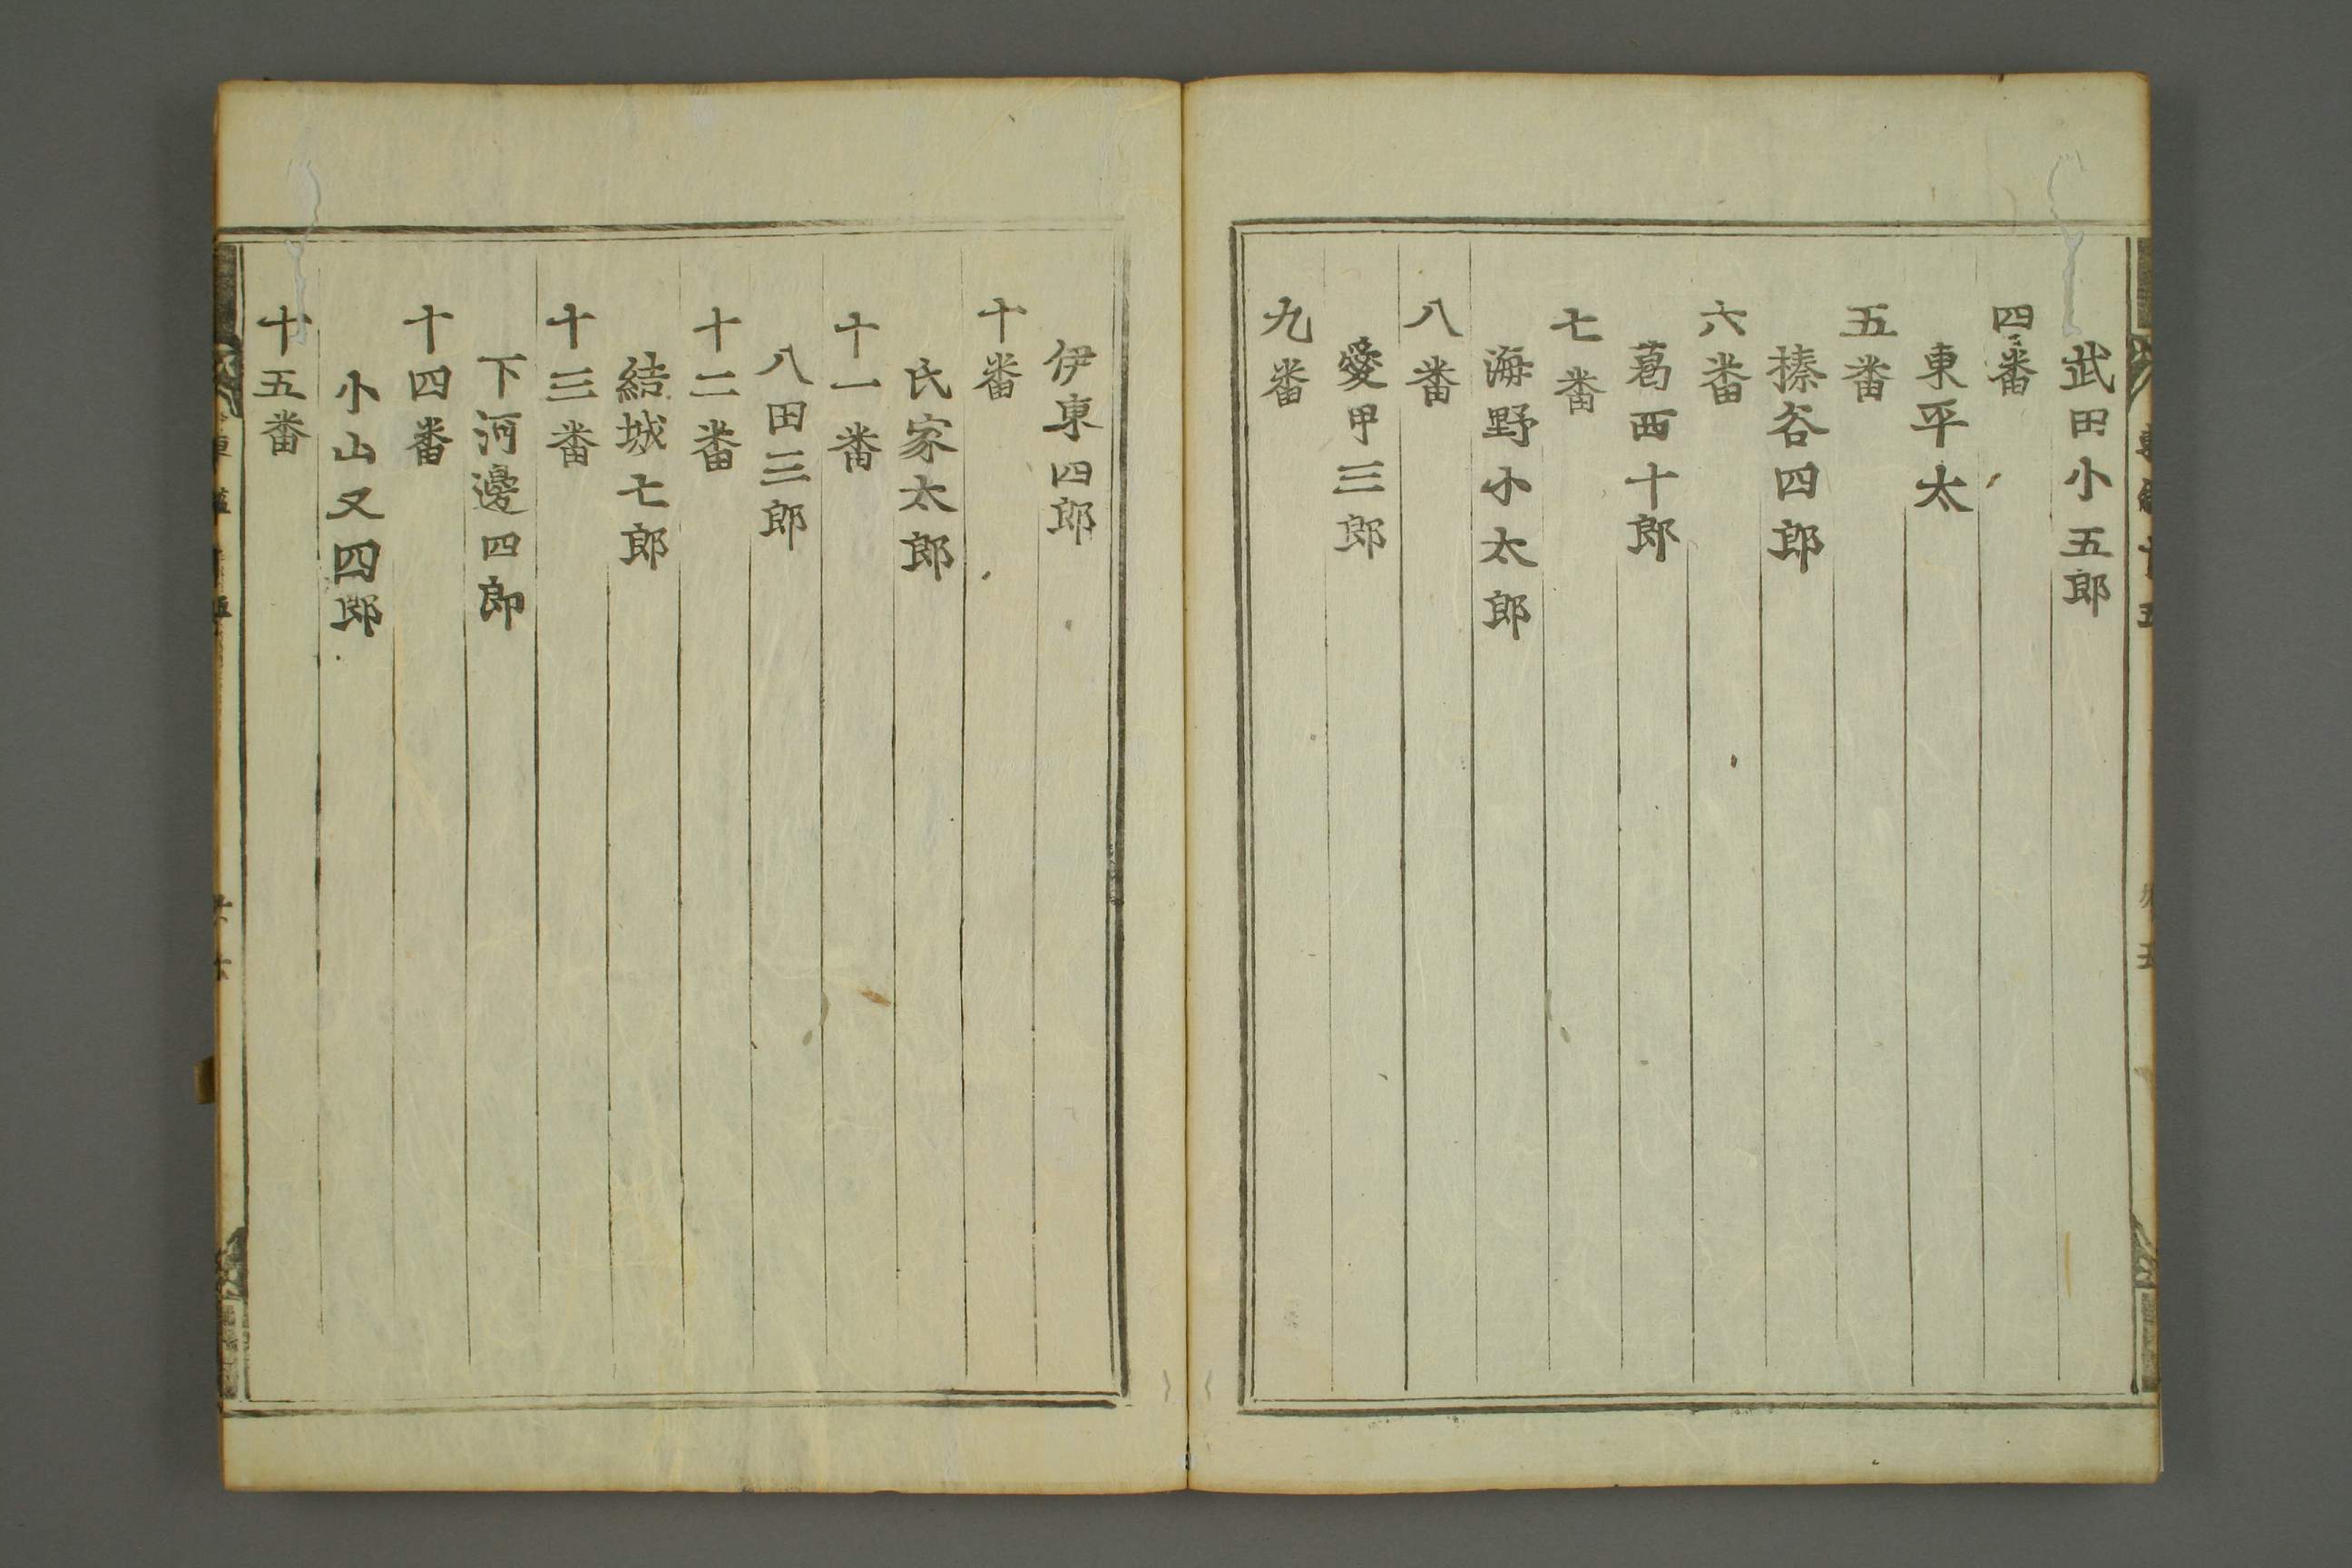 武田小五郎
四番
東平太
五番
榛谷四郎
六番
葛西十郎
七番
海野小太郎
八番
愛甲三郎
九番
伊東四郎
十番
氏家太郎
十一番
八田三郎
十二番
結城七郎
十三番
下河邊四郎
十四番
小山又四郎
十五番